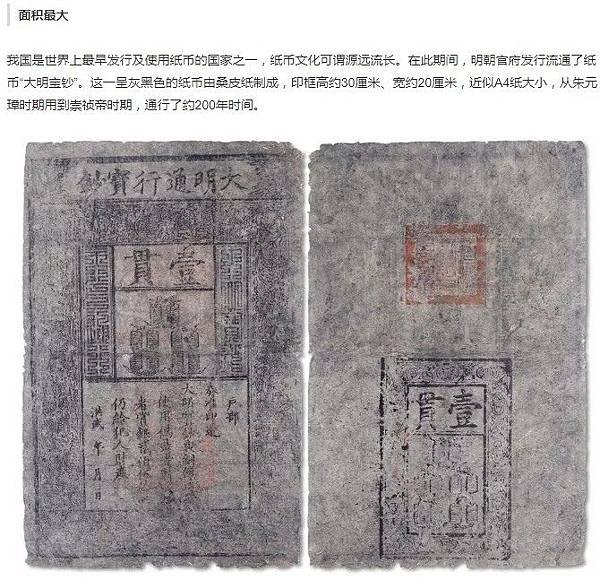 面积最大
我国是世界上最早发行及使用纸币的国家之一，纸币文化可谓源远流长。在此期间，明朝官府发行流通了纸
币“大明宝钞”。这一呈灰黑色的纸币由桑皮纸制成，印框高约30厘米、宽约20厘米，近似A4纸大小，从朱元
璋时期用到崇祯帝时期，通行了约200年时间。
大明通行寶鈔
壹貫
戶部
仍給犯人財產
洪武 年 月 日
壹貫